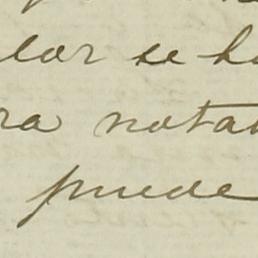 lor se ha
ra notar
puede